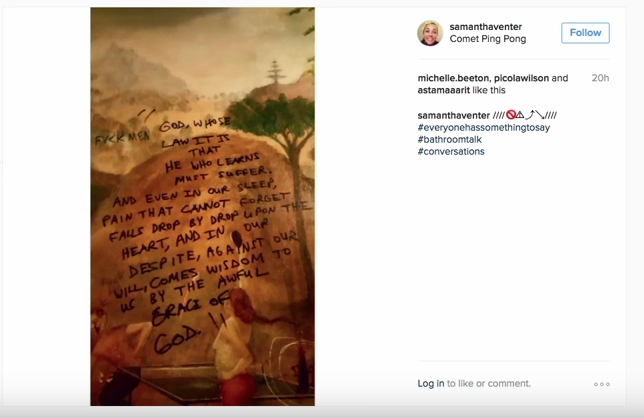 FUCK MEN
" GOD, WHOSE
LAW IT IS
THAT
HE WHO LEARNS
MUST SUFFER.
AND EVEN IN OUR SLEEP,
PAIN THAT CANNOT FORGET
FALLS DROP BY DROP UPON THE
HEART, AND IN OUR
DESPITE, AGAINST OUR
WILL, COMES WISDOM TO
US BY THE AWFUL
GRACE OF
GOD. "
samanthaventer
Comet Ping Pong
Follow
michelle.beeton, picolawilson and
astamaaarit like this
20h
samanthaventer ////🚫⚠⤴↘////
#everyonehassomethingtosay
#bathroomtalk
#conversations
Log in to like or comment.